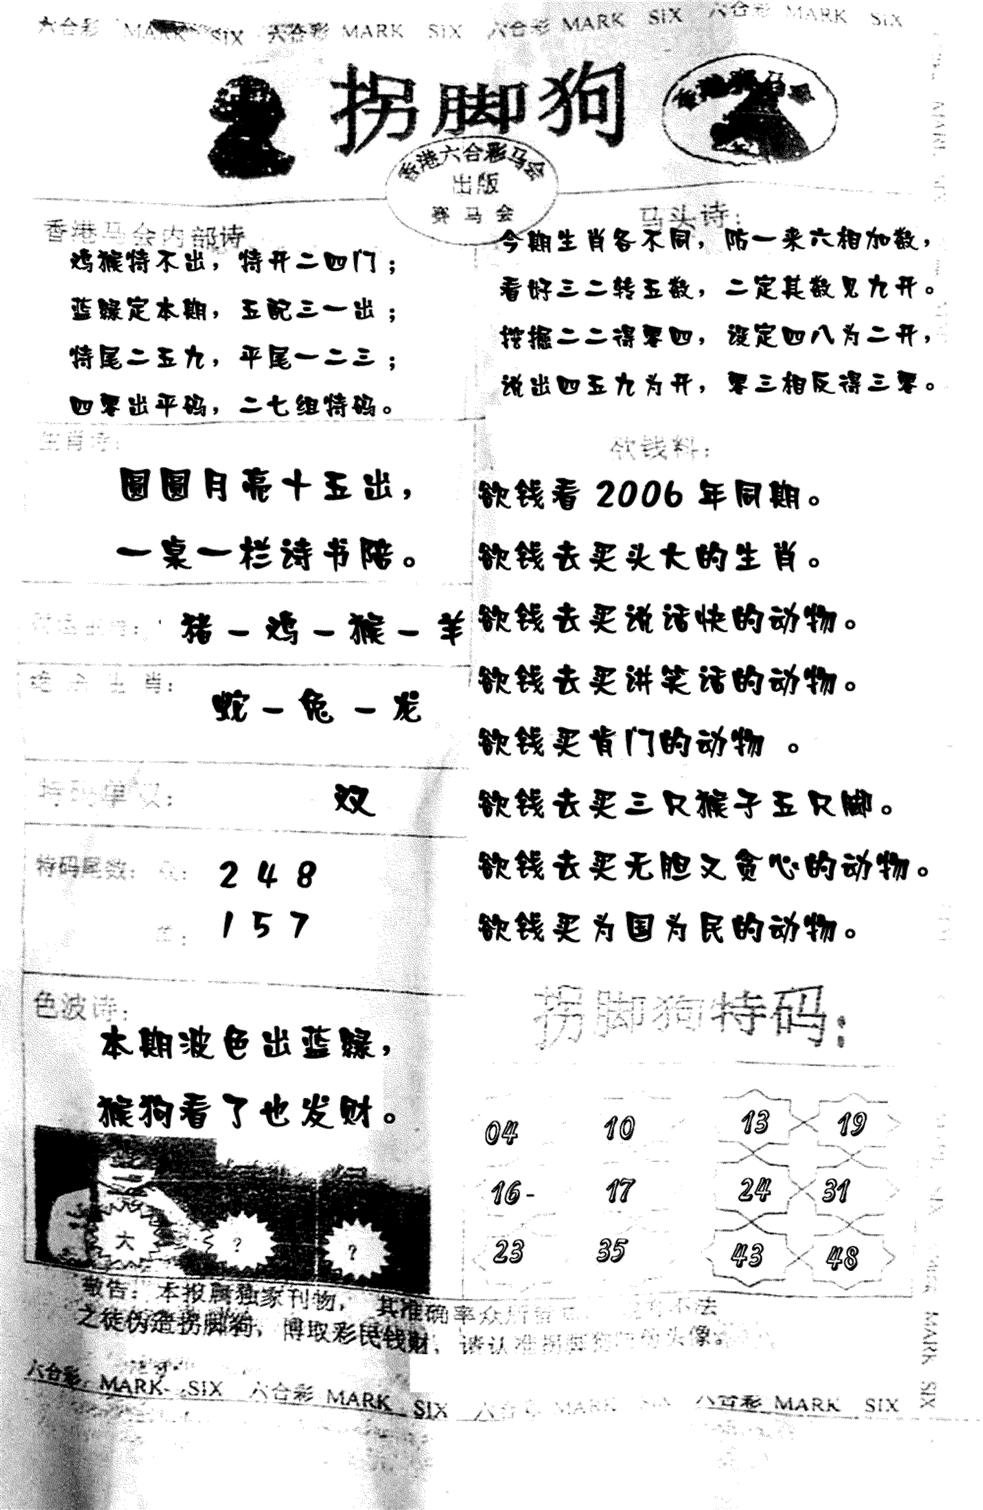 六合彩 MARK SIX 六合彩 MARK SIX 六合彩 MARK SIX 六合彩 MARK SIX
拐脚狗
香港赛马会
香港六合彩马会
出版
赛马会
香港马会内部诗
鸡猴特不出，特开二四门；
蓝绿定本期，五配三一出；
特尾二五九，平尾一二三；
四零出平码，二七组特码。
马头诗：
今期生肖各不同，防一来六相加数，
看好三二转五数，二定其数见九开。
挖掘二二得零四，设定四八为二开，
说出四五九为开，零三相反得三零。
生肖诗：
圆圆月亮十五出，
一桌一栏诗书陪。
猪－鸡－猴－羊
绝杀生肖：
蛇－兔－龙
特码单双：
双
特码尾数：双：
2 4 8
单：
1 5 7
色波诗：
本期波色出蓝绿，
猴狗看了也发财。
大 ？ ？
欲钱料：
欲钱看 2006 年同期。
欲钱去买头大的生肖。
欲钱去买说话快的动物。
欲钱去买讲笑话的动物。
欲钱买肯门的动物 。
欲钱去买三只猴子五只脚。
欲钱去买无胆又贪心的动物。
欲钱买为国为民的动物。
拐脚狗特码：
04 10 13 19
16- 17 24 31
23 35 43 48
敬告：本报属独家刊物，其准确率众所
之徒伪造拐脚狗，博取彩民钱财，请认准拐脚狗
六合彩 MARK SIX 六合彩 MARK SIX 六合彩 MARK SIX 六合彩 MARK SIX
MARK SIX